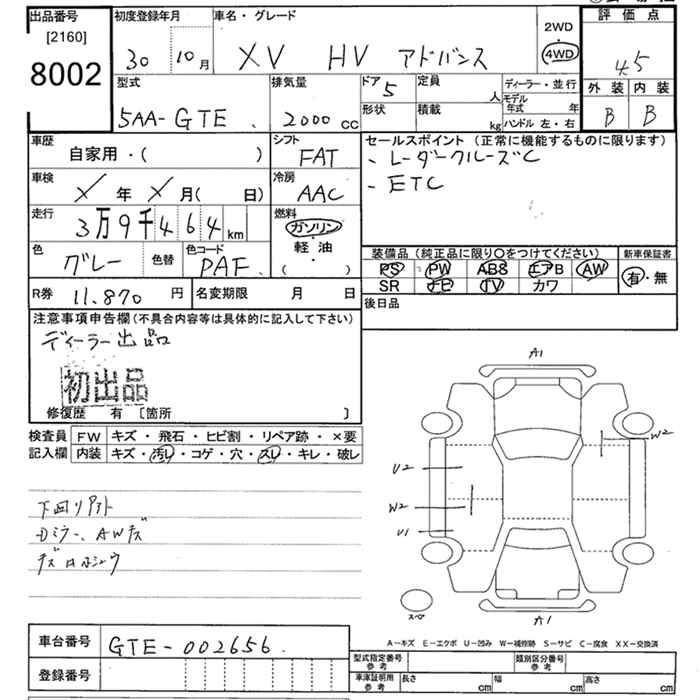 出品番号
[2160]
8002
初度登録年月
30 10月
車名・グレード
XV HV アドバンス
2WD
4WD
評価点
4.5
外装 内装
B B
型式
5AA-GTE
排気量
2000cc
ドア
5
定員
人
形状
積載
kg
ディーラー・並行
モデル年式 年
ハンドル 左・右
車歴
自家用・( )
シフト
FAT
セールスポイント (正常に機能するものに限ります)
レーダークルーズC
ETC
車検
年 月( 日)
冷房
AAC
走行
3万9千464km
燃料
ガソリン
軽油
( )
色
グレー
色替
色コード
PAF
装備品 (純正品に限り○をつけてください)
PS PW ABS エアB AW
SR ナビ TV カワ
新車保証書
有・無
R券 11,870 円
名変期限 月 日
後日品
注意事項申告欄 (不具合内容等は具体的に記入して下さい)
ディーラー出品
初出品
修復歴 有 [箇所 ]
検査員記入欄
FW キズ・飛石・ヒビ割・リペア跡・×要
内装 キズ・汚レ・コゲ・穴・スレ・キレ・破レ
A1
W2
U2
W2
U1
A1
スペア
下回り
Dミラー、AWキズ
A-キズ E-エクボ U-凹み W-補修跡 S-サビ C-腐食 XX-交換済
車台番号 GTE-002656
登録番号
型式指定番号 参考
類別区分番号 参考
車庫証明用 参考
長さ cm
幅 cm
高さ cm